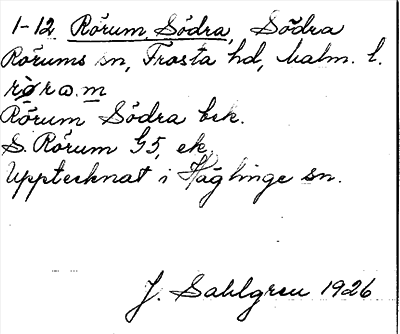 1-12 Rörum, Södra, Södra
Rörums sn, Frosta hd, Malm. l.
Rörum Södra bek.
S. Rörum G5, ek.
Upptecknat i Häglinge sn.
J. Sahlgren 1926